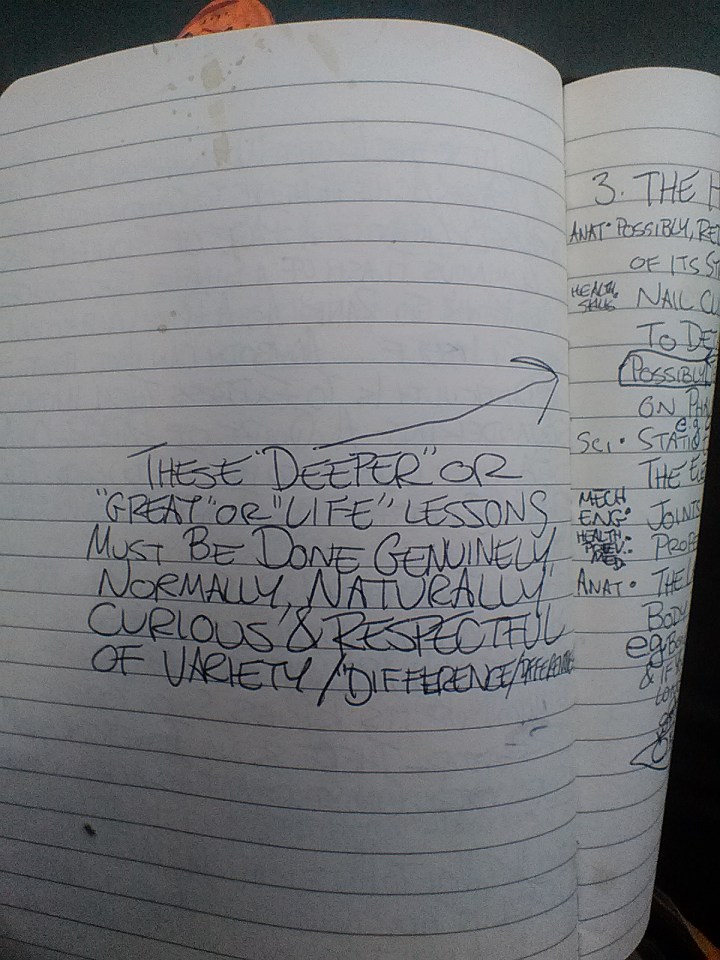 THESE "DEEPER" OR
"GREAT" OR "LIFE" LESSONS
MUST BE DONE GENUINELY,
NORMALLY, NATURALLY
CURIOUS & RESPECTFUL
OF VARIETY/DIFFERENCE/
3. THE H
ANAT• POSSIBLY, RE
OF ITS ST
HEALTH SKILLS NAIL CU
TO DE
POSSIBLY
ON PHA
e.g.
SCI• STATI
THE E
MECH ENG• JOINTS
HEALTH• PREV. MED. PROP
ANAT• THE
BODY
eg
& IF